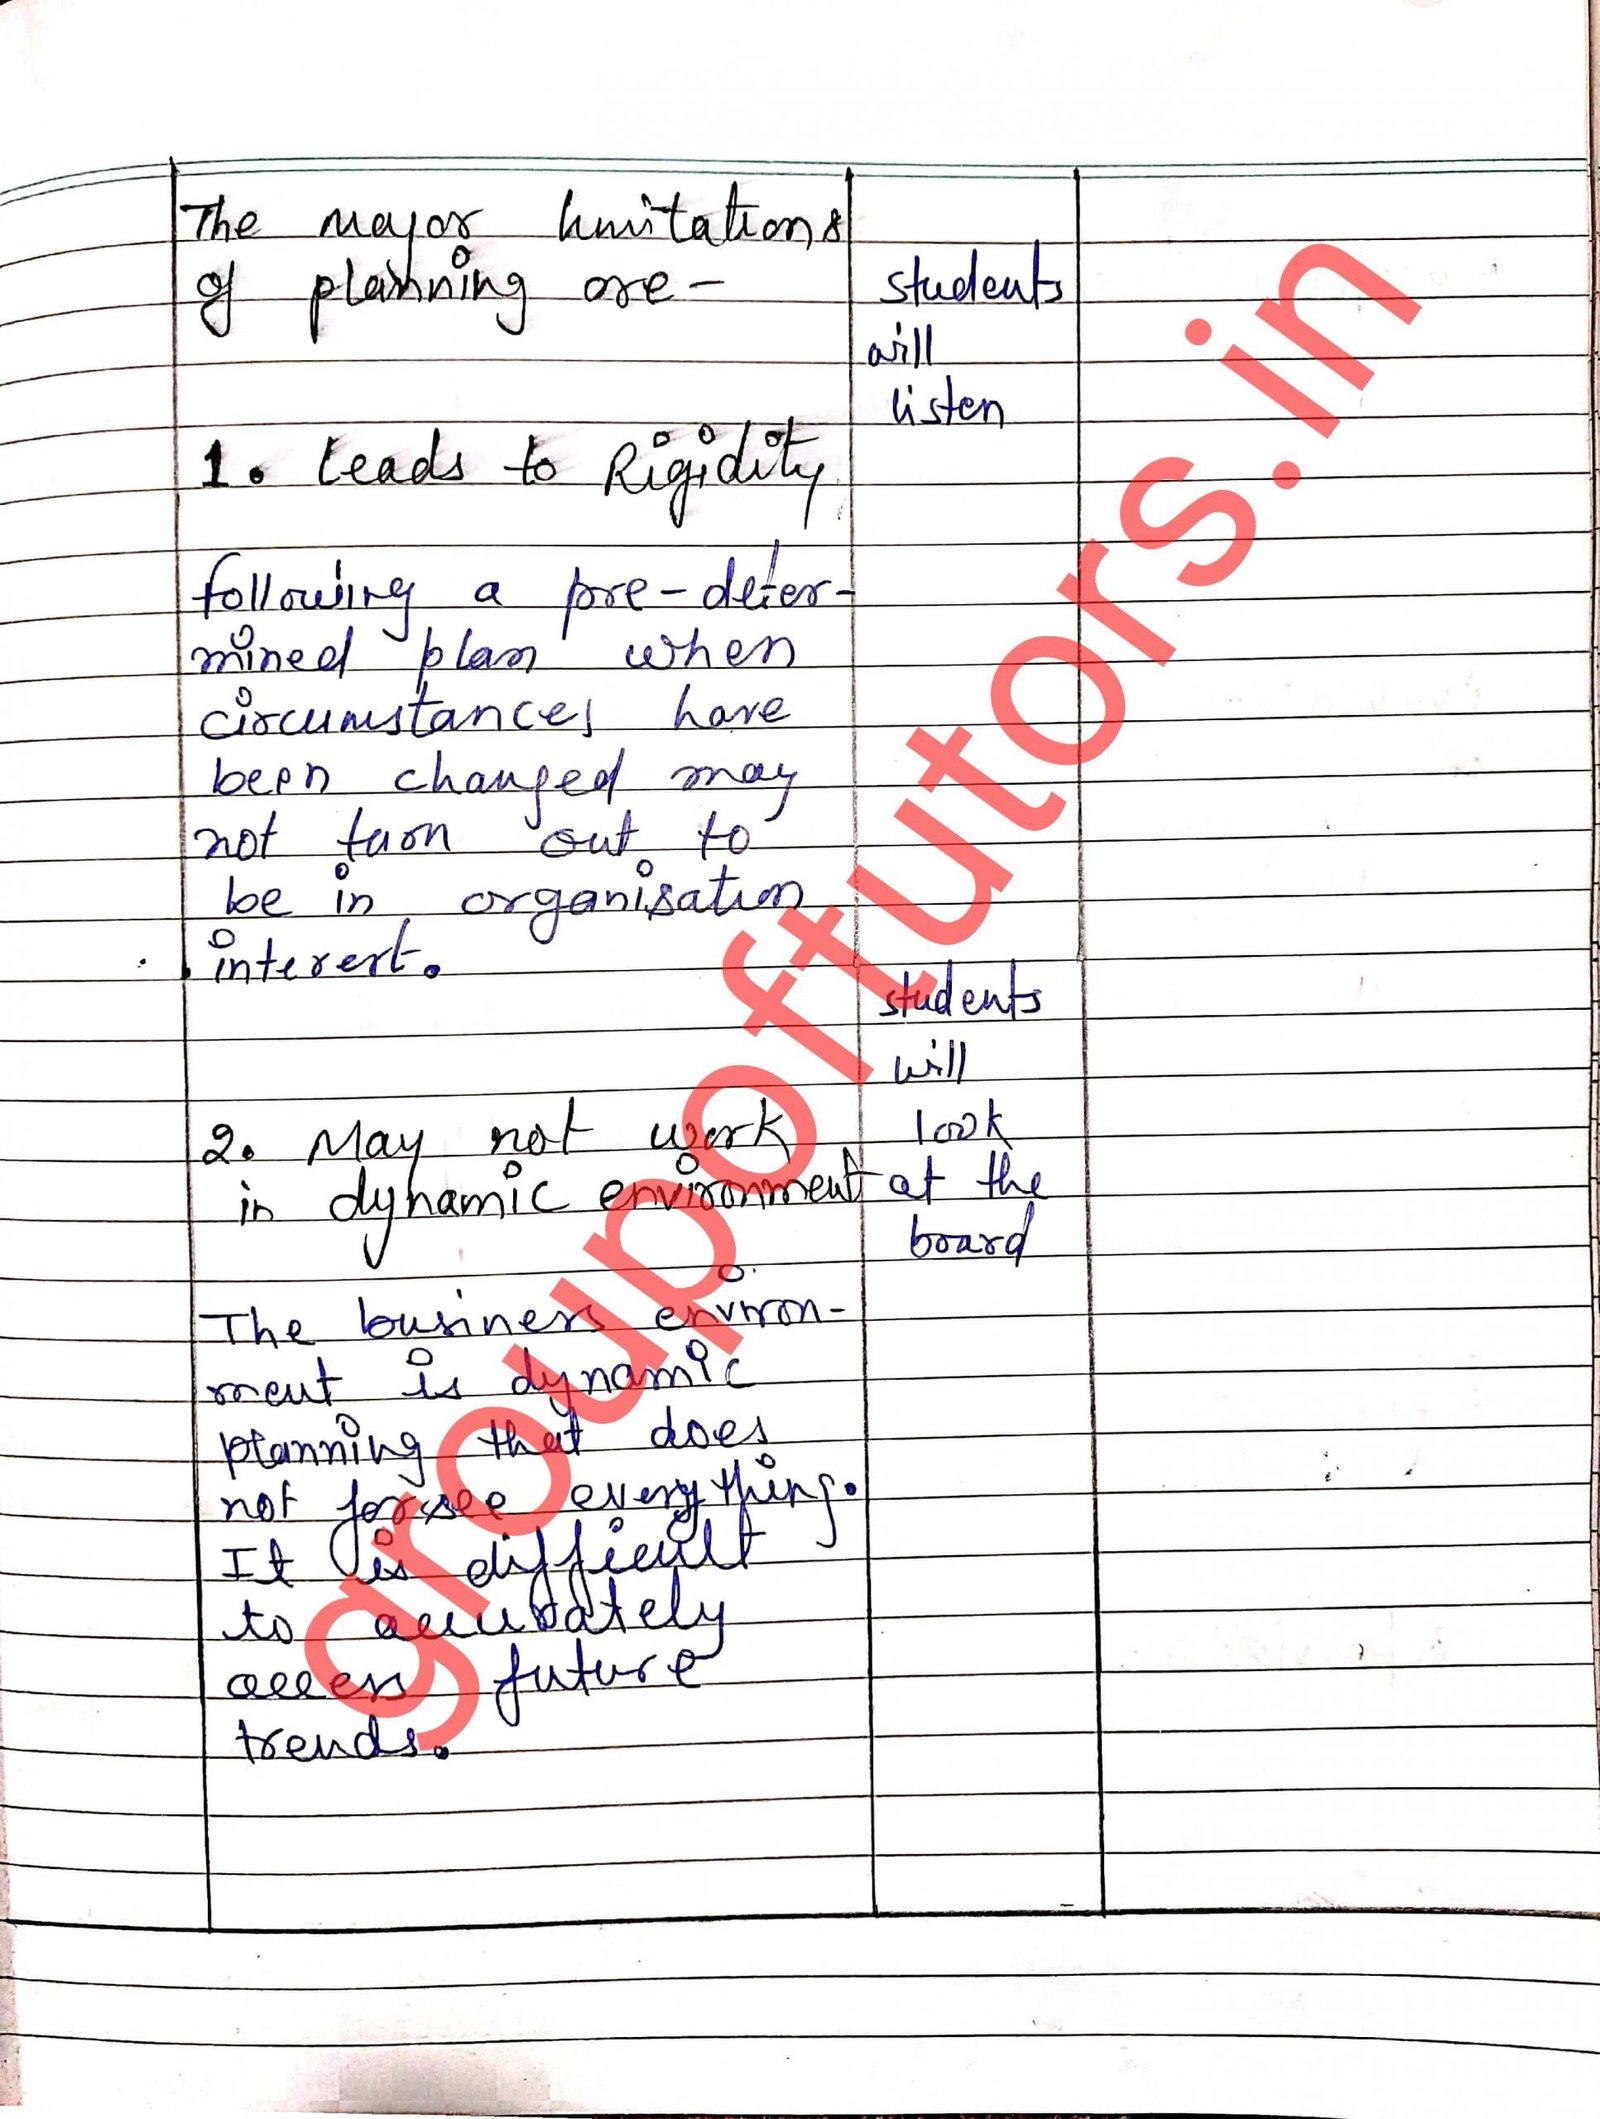 The major limitations
of planning are-
students
will
listen
1. Leads to Rigidity
following a pre-deter-
mined plan when
circumstances have
been changed may
not turn out to
be in organisation
interest.
students
will
look
at the
board
2. May not work
in dynamic environment
The business environ-
ment is dynamic
planning that does
not forsee everything.
It is difficult
to accurately
access future
trends.
groupoftutors.in